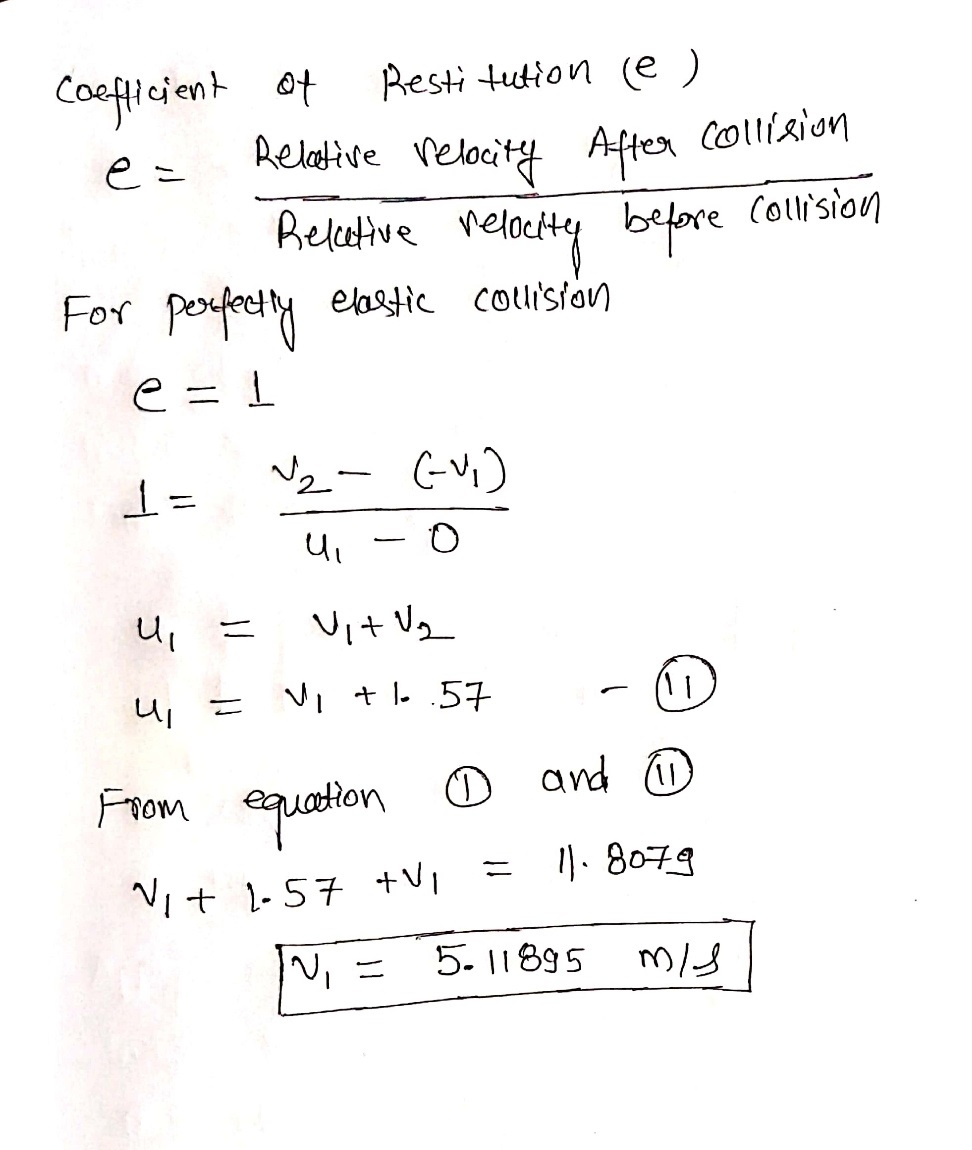 Coefficient of Restitution (e)
e = Relative velocity After collision
Relative velocity before collision
For perfectly elastic collision
e = 1
1 = v₂ - (-v₁)
u₁ - 0
u₁ = v₁ + v₂
u₁ = v₁ + 1.57 - (11)
From equation (1) and (11)
v₁ + 1.57 + v₁ = 11.8079
v₁ = 5.11895 m/s